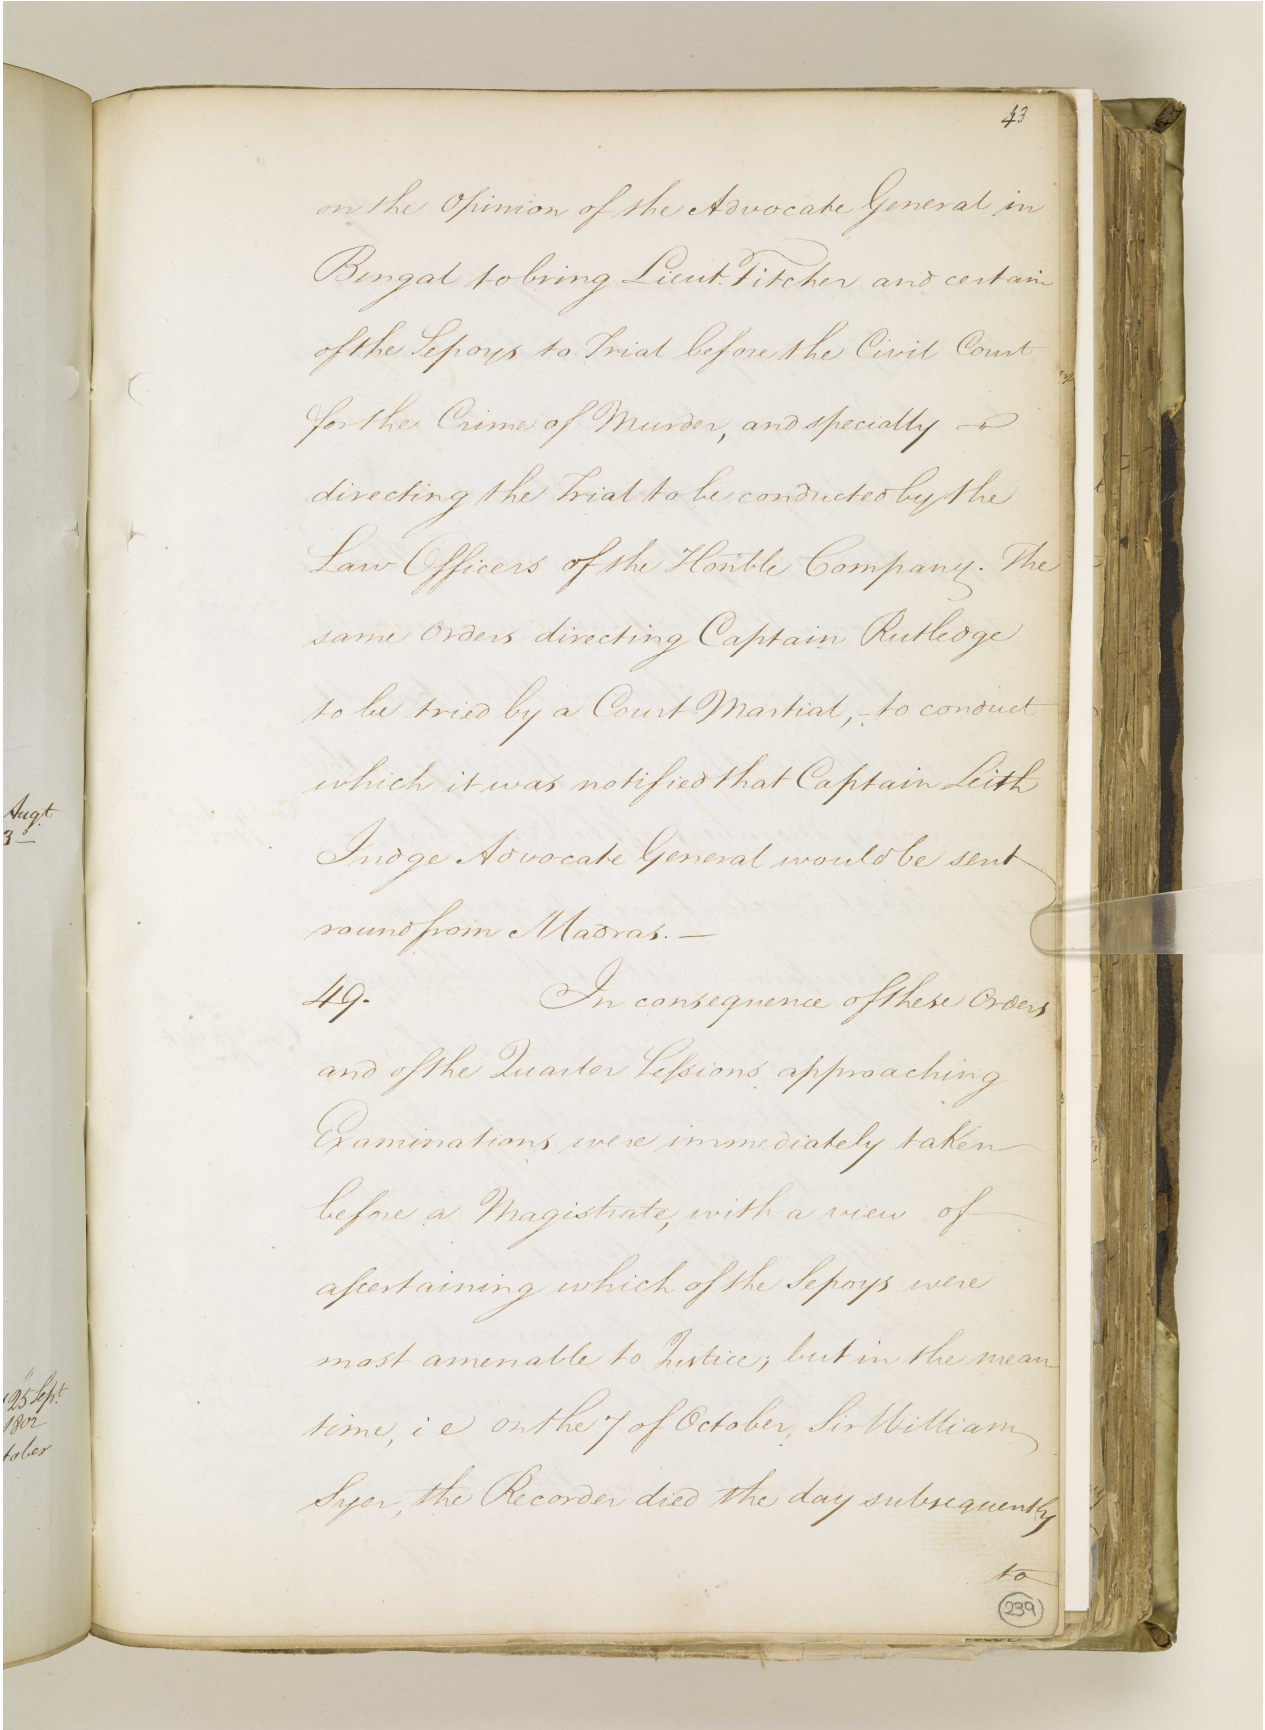 43
on the Opinion of the Advocate General in
Bengal to bring Lieut. Fitcher and certain
of the Sepoys to Trial before the Civil Court
for the Crime of Murder, and specially
directing the Trial to be conducted by the
Law Officers of the Honble Company. The
same Orders directing Captain Rutledge
to be tried by a Court Martial, - to conduct
which it was notified that Captain Leith
Judge Advocate General would be sent
round from Madras. —
49. In consequence of these Orders
and of the Quarter Sessions approaching
Examinations were immediately taken
before a Magistrate, with a view of
ascertaining which of the Sepoys were
most amenable to Justice; but in the mean
time, i e on the 7 of October, Sir William
Syer, the Recorder died the day subsequently
to
239
Augt.
3 —
25 Sept.
1802
tober